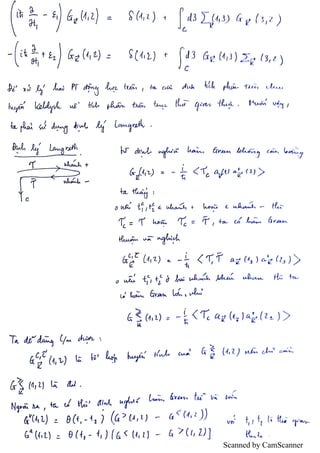 (iħ ∂/∂t₁ − ε₁) G_k(1,2) = δ(1,2) + ∫_C d3 Σ_k(1,3) G_k(3,2)
−(iħ ∂/∂t₁ + ε₂) G_k(1,2) = δ(1,2) + ∫_C d3 G_k(1,3) Σ_k(3,2)
Để xử lý hai PT động học trên, ta cần tích phân trên
Keldysh về tích phân trên trục thời gian thực. Muốn vậy,
ta phải sử dụng định lý Langreth.
Định lý Langreth
T nhánh +
T̄ nhánh −
C
từ định nghĩa hàm Green không cân bằng
G_k(1,2) = −i/ħ <T_C a_k(1) a_k⁺(2)>
ta thấy:
o nếu t₁, t₂ ∈ nhánh + hoặc ∈ nhánh − thì
T_C = T hoặc T_C = T̄, ta có hàm Green
thuận và nghịch
o nếu t₁, t₂ ở hai nhánh khác nhau thì ta
có hàm Green lớn,
Ta dễ dàng c/m được:
là tổ hợp tuyến tính của G_k^≷(1,2) nên chỉ cần
G_k^≷(1,2) là đủ.
Ngoài ra, ta có thể định nghĩa hàm Green trễ và sớm
Gʳ(1,2) = θ(t₁ − t₂) (G^>(1,2) − G^<(1,2))
Gᵃ(1,2) = θ(t₂ − t₁) [G^<(1,2) − G^>(1,2)]
với t₁, t₂ là thời gian
thực
Scanned by CamScanner